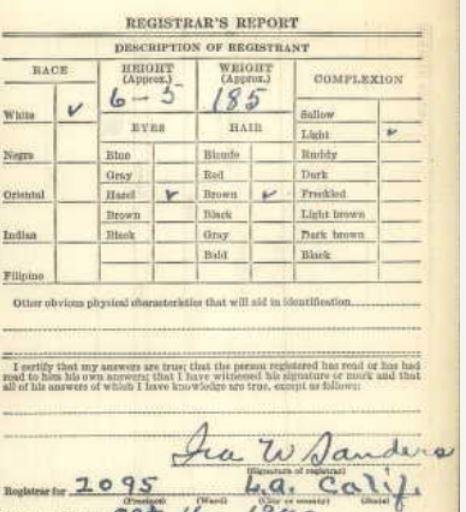 REGISTRAR'S REPORT
DESCRIPTION OF REGISTRANT
RACE HEIGHT (Approx.) WEIGHT (Approx.) COMPLEXION
6-5 185
White ✓ Sallow
EYES HAIR Light ✓
Negro Blue Blonde Ruddy
Gray Red Dark
Oriental Hazel ✓ Brown ✓ Freckled
Brown Black Light brown
Indian Black Gray Dark brown
Bald Black
Filipino
Other obvious physical characteristics that will aid in identification
I certify that my answers are true; that the person registered has read or has had
read to him his own answers; that I have witnessed his signature or mark and that
all of his answers of which I have knowledge are true, except as follows:
Ira W Sanders
(Signature of registrar)
Registrar for 2095 L.a. Calif.
(Precinct) (Ward) (City or county) (State)